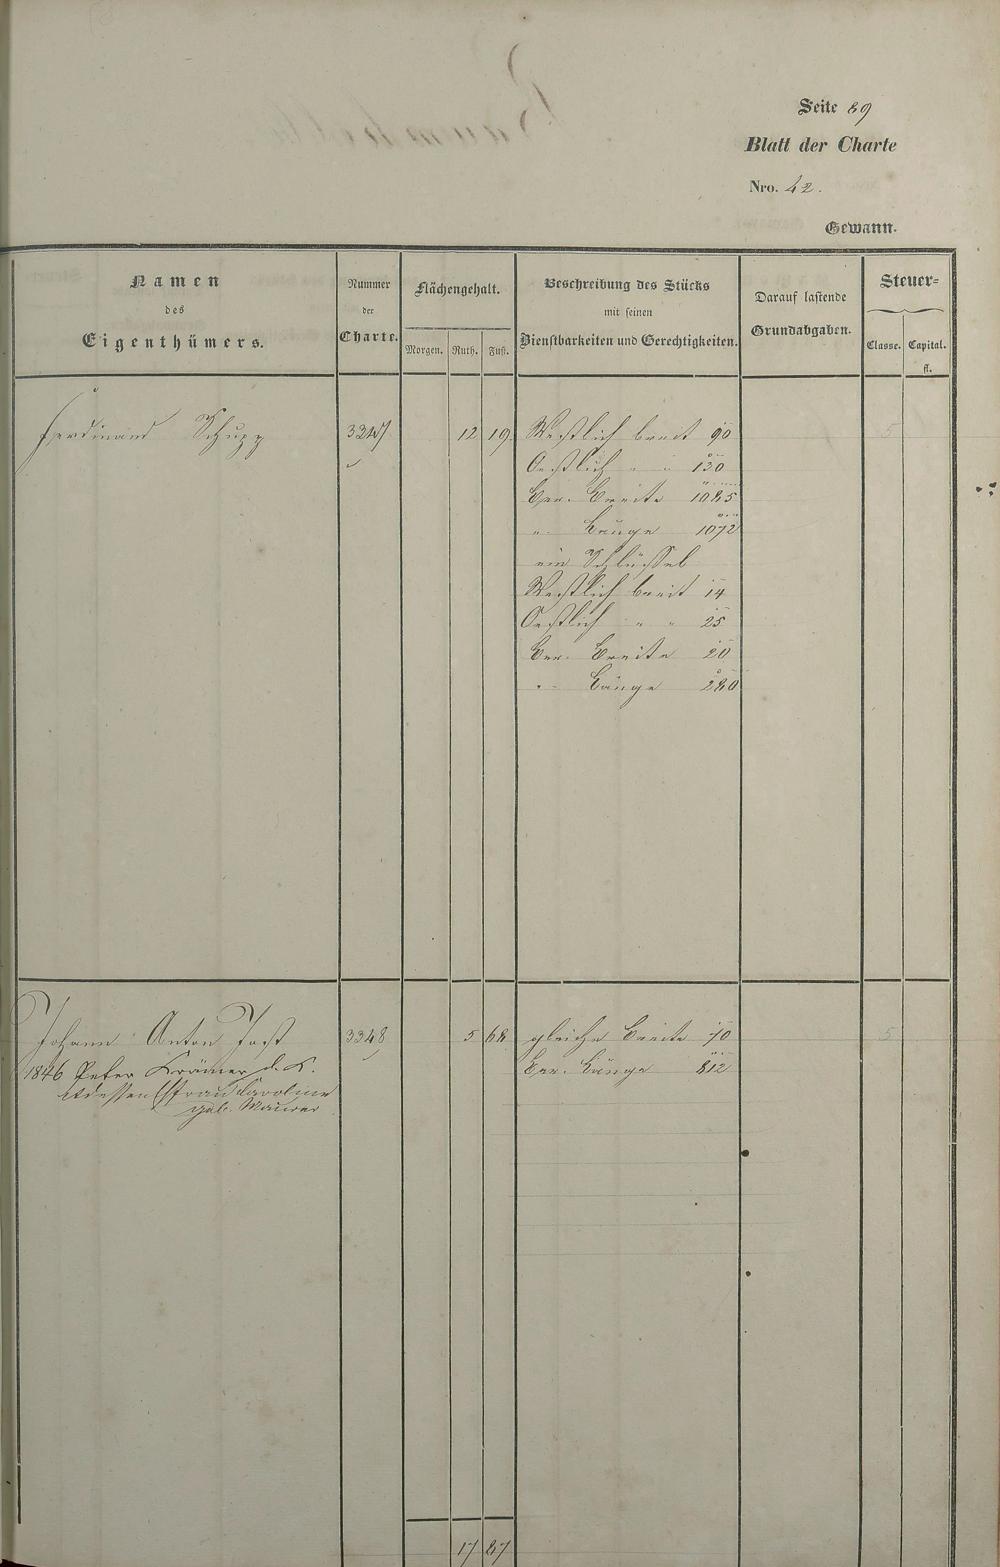 Seite 89
Blatt der Charte
Nro. 42.
Gewann.
Namen des Eigenthümers.
Nummer der Charte.
Flächengehalt.
Morgen. Ruth. Fuß.
Beschreibung des Stücks mit seinen Dienstbarkeiten und Gerechtigkeiten.
Darauf lastende Grundabgaben.
Steuer-
Classe. Capital. fl.
Ferdinand Schupp 3347 12 19 Westlich breit 90 5
Oestlich " " 130
Ger. Breite 1085
" Länge 1072
ein Schlüssel
Westlich breit 14
Oestlich " " 25
Ger. Breite 20
" Länge 280
Johann Anton Jost 3348 5 68 gleiche Breite 70 5
1846 Peter Krämer d. K. Ger. Länge 812
et dessen Efrau Caroline
geb. Maurer
17 87